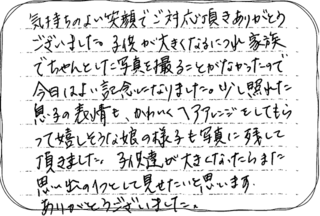 気持ちのよい笑顔でご対応頂きありがとう
ございました。子供が大きくなるにつれ家族
でちゃんとした写真を撮ることがなかったので
今日はよい記念になりました。少し照れた
息子の表情も、かわいくヘアアレンジをしてもら
って嬉しそうな娘の様子も写真に残して
頂きました。子供達が大きくなったらまた
思い出の1つとして見せたいと思います。
ありがとうございました。